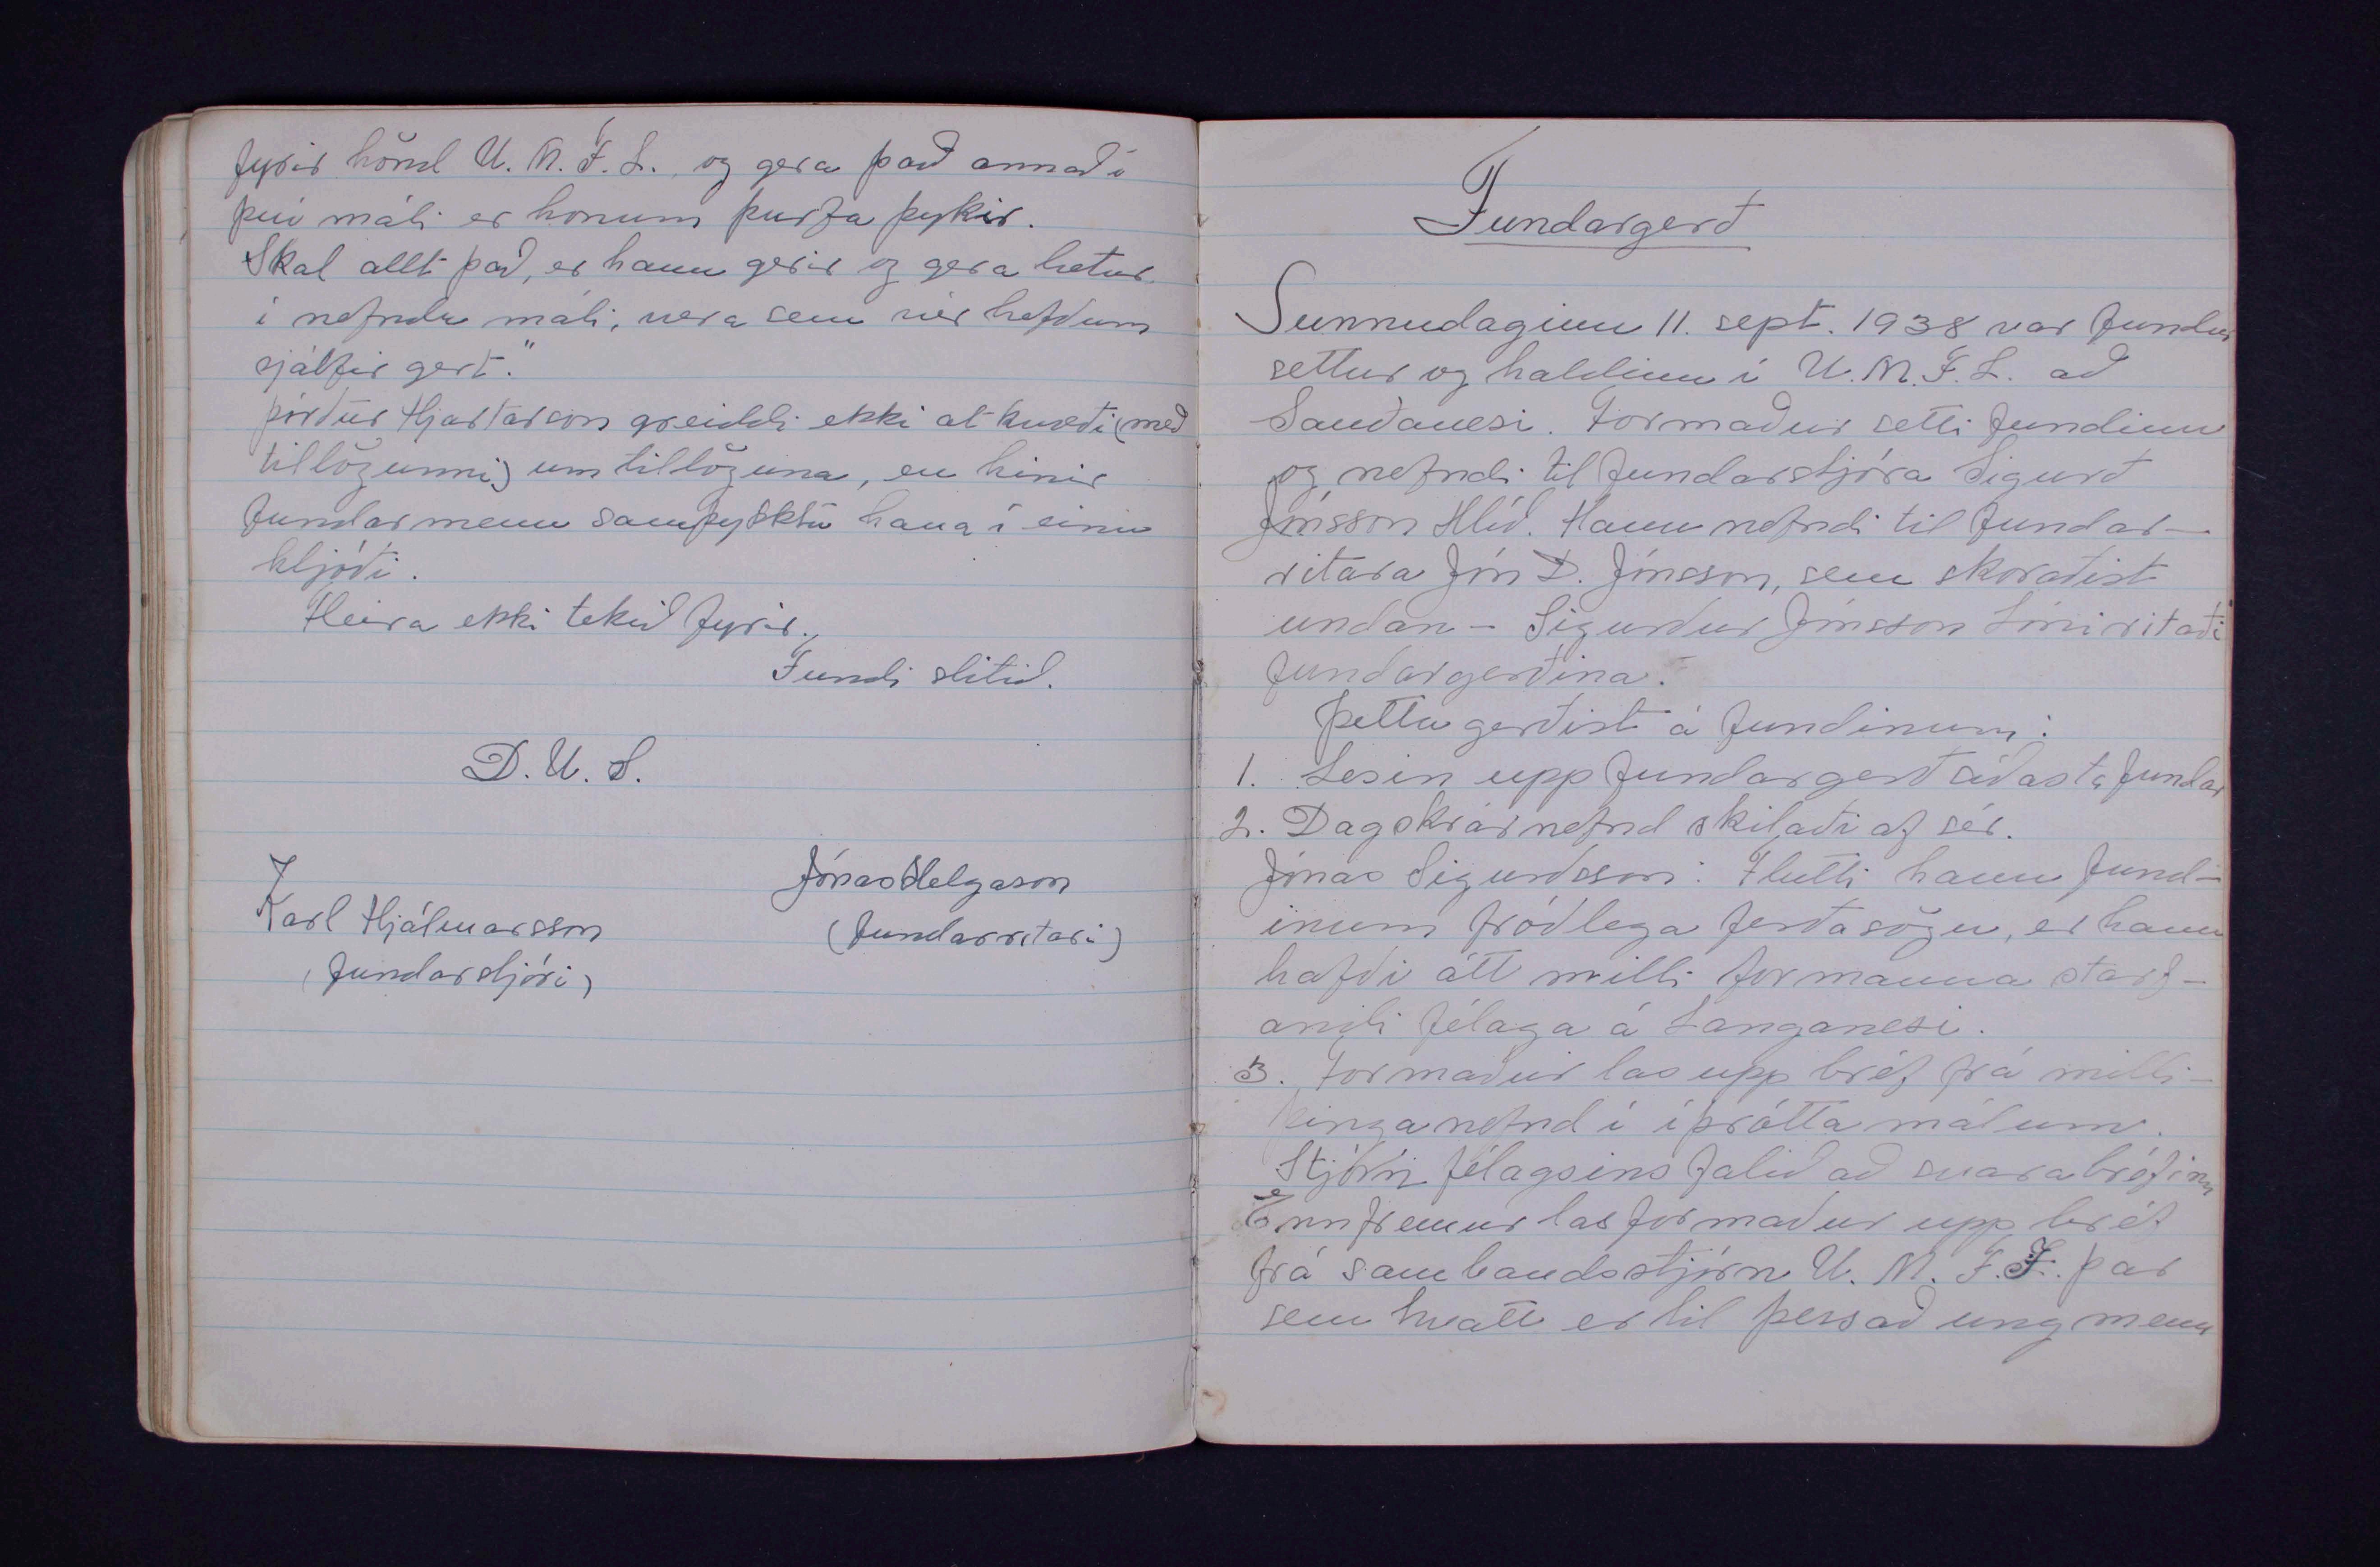 fyrir hönd U. M. F. L. og gera það annað í
því máli er honum þurfa þykir.
Skal allt það, er hann gerir og gera lætur
í nefndu máli, vera sem vér hefðum
sjálfir gert."
Þórður Hjartarson greiddi ekki atkvæði (með
tillögunni) um tillöguna, en hinir
fundarmenn samþykktu hana í einu
hljóði.
Meira ekki tekið fyrir.
Fundi slitið.
D. U. S.
Jónas Helgason
(fundarritari)
Karl Hjálmarsson
(fundarstjóri)
Fundargerð
Sunnudaginn 11. sept. 1938 var fundur
settur og haldinn í U. M. F. L. að
Sauðanesi. Formaður setti fundinn
og nefndi til fundarstjóra Sigurð
Jónsson Hlíð. Hann nefndi til fundar-
ritara Jón D. Jónsson, sem skoraðist
undan - Sigurður Jónsson Lóni ritaði
fundargerðina.
Þetta gerðist á fundinum:
1. Lesin upp fundargerð síðasta fundar
2. Dagskrárnefnd skilaði af sér.
Jónas Sigurðsson: Flutti hann fund-
inum fróðlega ferðasögu, er hann
hafði átt milli formanna starf-
andi félaga á Langanesi.
3. Formaður las upp bréf frá milli-
þinganefnd í íþróttamálum.
Stjórn félagsins falið að svara bréfinu
Ennfremur las formaður upp bréf
frá sambandsstjórn U. M. F. Í. þar
sem hvatt er til þess að ungmenn